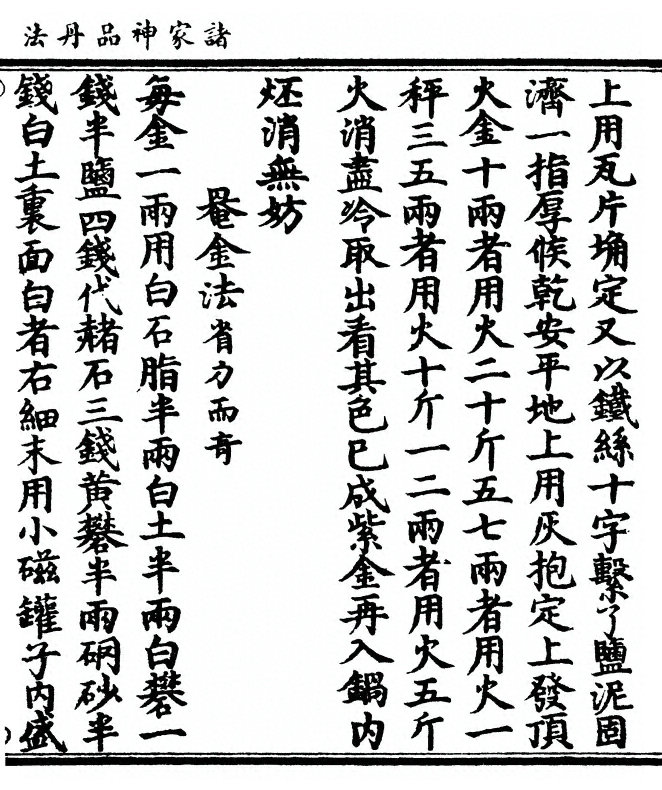 諸家神品丹法
上用瓦片埇定又以鐵絲十字繫了鹽泥固
濟一指厚候乾安平地上用灰抱定上發頂
火金十兩者用火二十斤五七兩者用火一
秤三五兩者用火十斤一二兩者用火五斤
火消盡冷取出看其色已成紫金再入鍋内
烴消無妨
罨金法省力而奇
每金一兩用白石脂半兩白土半兩白礬一
錢半鹽四錢代赭石三錢黄礬半兩硇砂半
錢白土裏面白者右細末用小磁罐子内盛